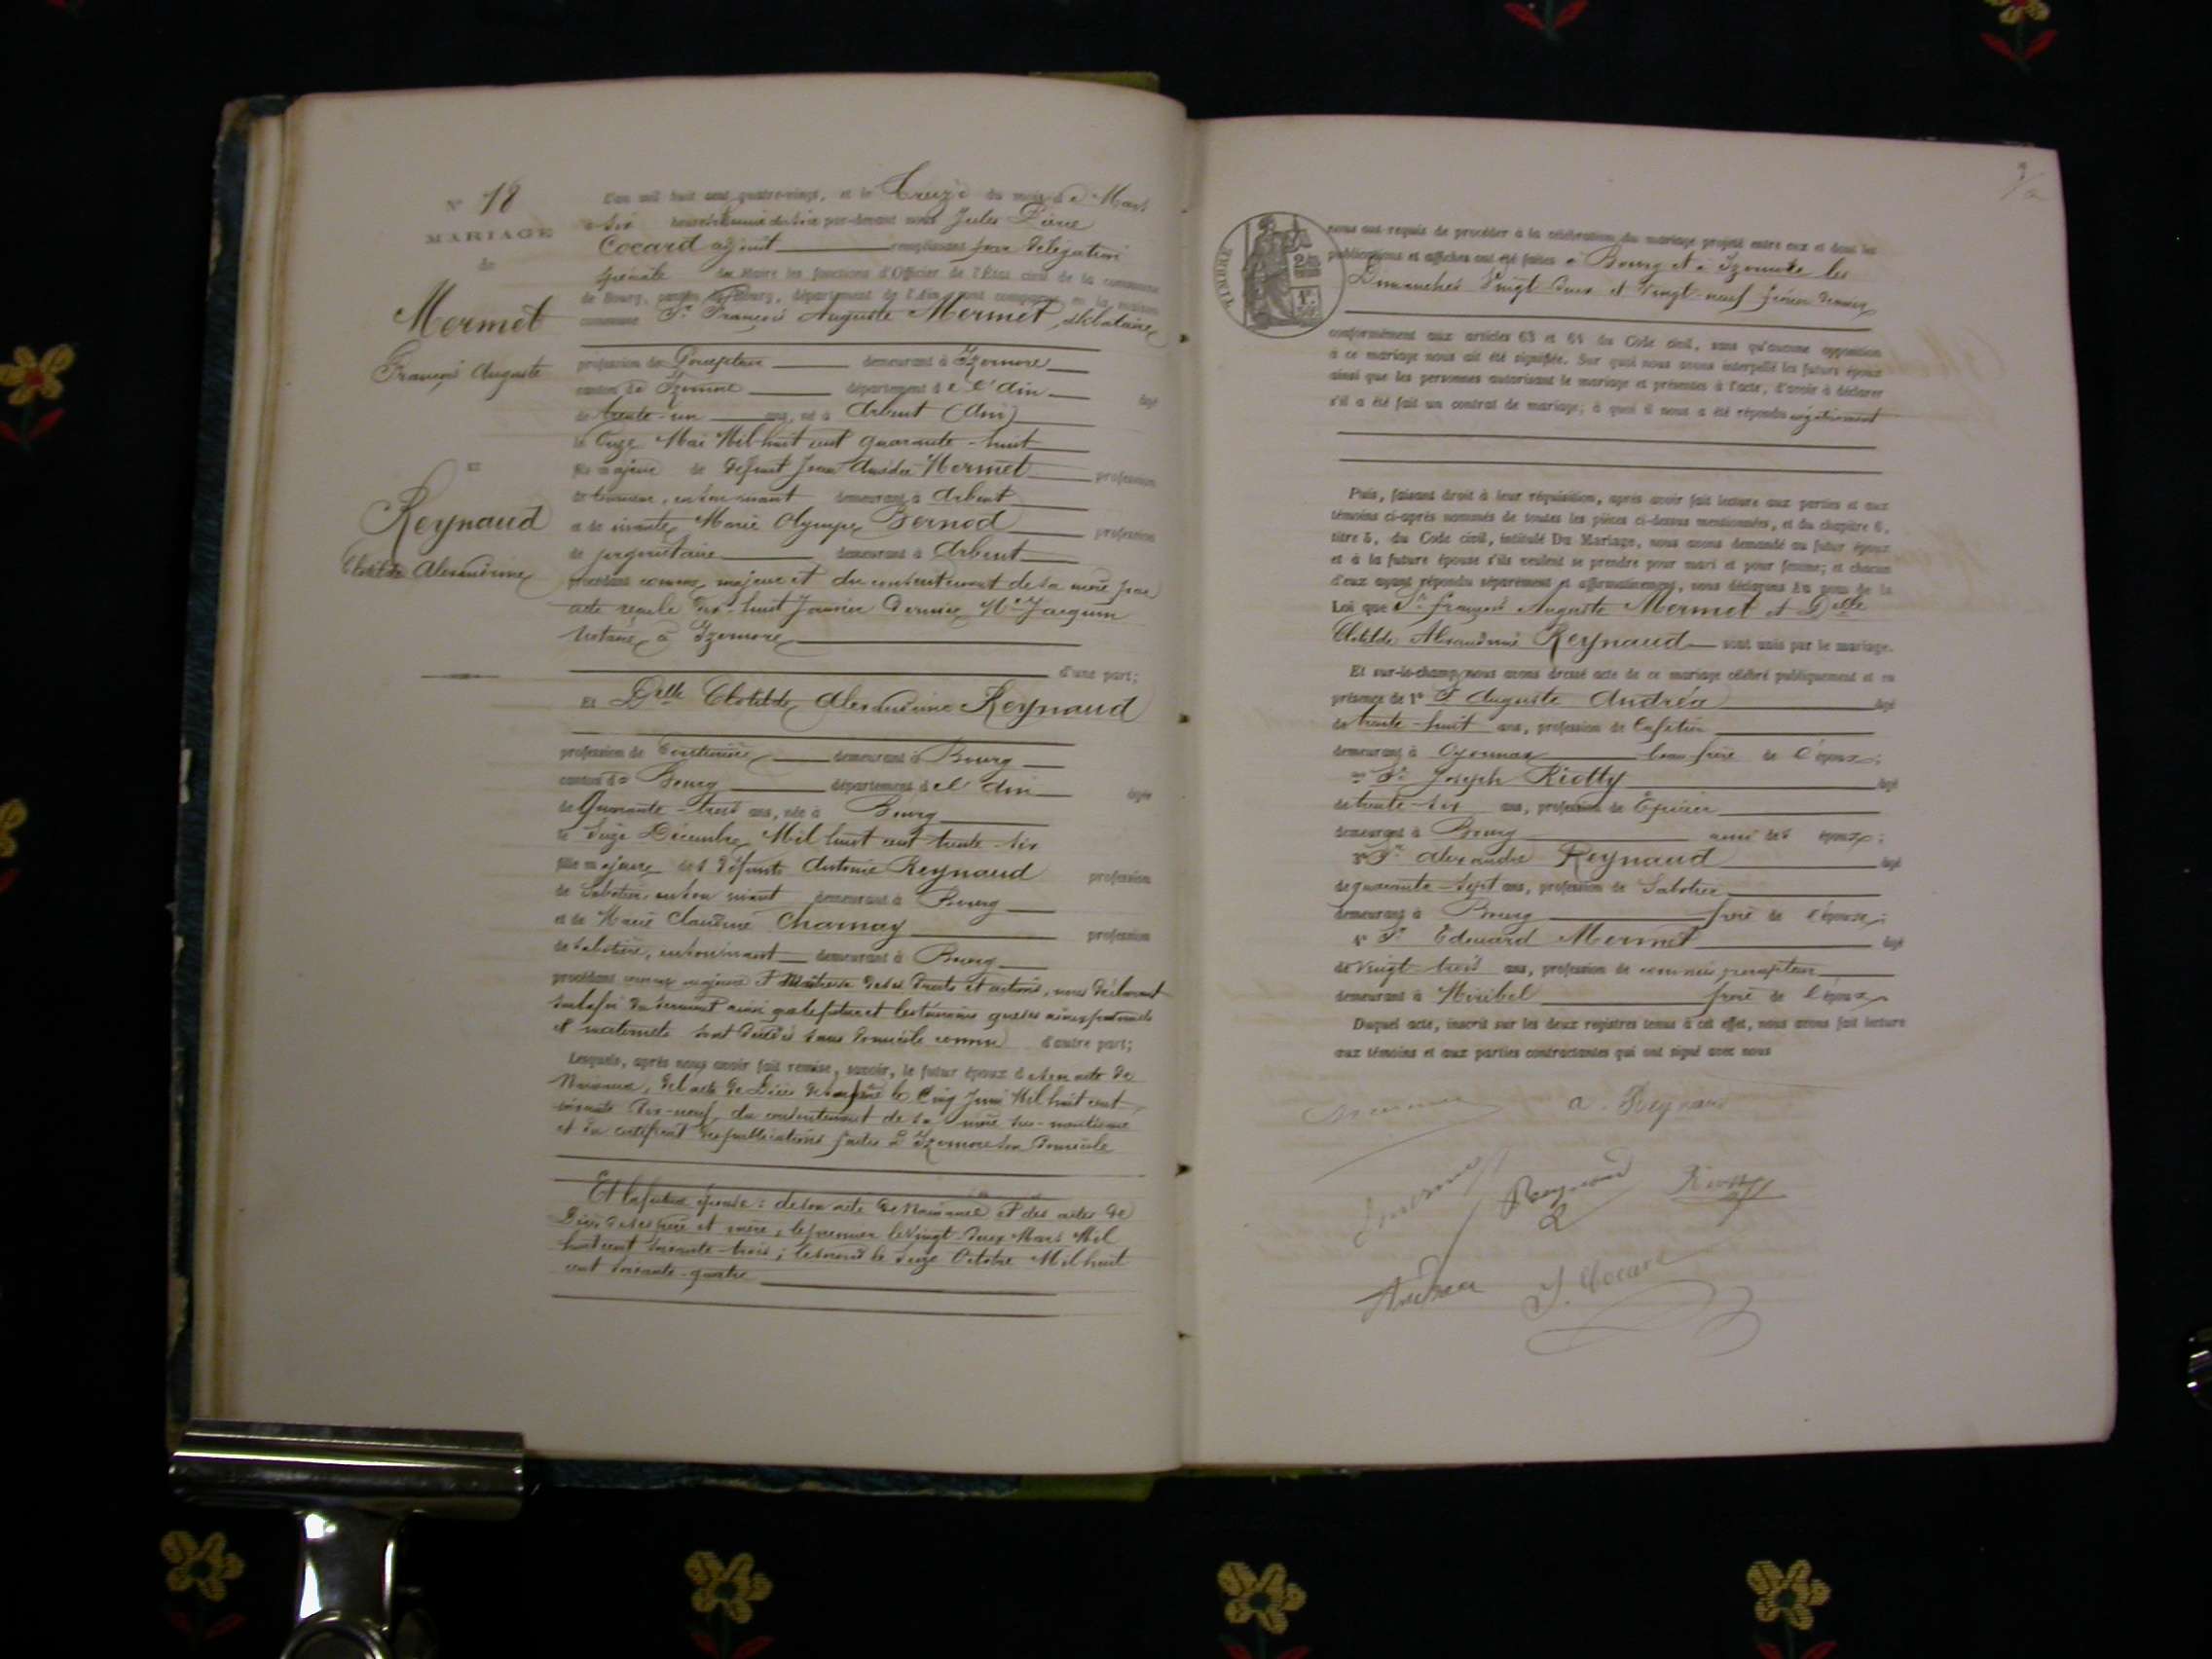 N° 18
MARIAGE
de
Mermet
François Auguste
ET
Reynaud
Clotilde Alexandrine
L'an mil huit cent quatre-vingt, et le Treize du mois de Mars
à six heures du soir par-devant nous Jules Pierre
Cocard adjoint remplissant par délégation
spéciale du Maire les fonctions d'Officier de l'État civil de la commune
de Bourg, canton de Bourg, département de l'Ain, sont comparus en la maison
commune Sr François Auguste Mermet, célibataire
profession de Percepteur demeurant à Izernore
canton de Izernore département de l'Ain âgé
de trente-un ans, né à Arbent (Ain)
le Onze Mai Mil huit cent quarante-huit
fils majeur de défunt Jean Amédée Mermet profession
de en son vivant demeurant à Arbent
et de vivante Marie Olympe Bernod profession
de propriétaire demeurant à Arbent
procédant comme majeur et du consentement de sa mère par
acte reçu le dix-huit Janvier dernier Me Jacquin
Notaire à Izernore
d'une part;
Et Delle Clotilde Alexandrine Reynaud
profession de Couturière demeurant à Bourg
canton de Bourg département de l'Ain âgée
de Quarante-trois ans, née à Bourg
le Seize Décembre Mil huit cent trente-six
fille majeure des défunts Antoine Reynaud profession
de Sabotier, en son vivant demeurant à Bourg
et de Marie Claudine Charnay profession
de Sabotière, en son vivant demeurant à Bourg
procédant comme majeure et Maîtresse de ses droits et actions, nous déclarant
sous la foi du serment ainsi que le futur et les témoins que ses aïeux paternels
et maternels sont décédés sans domicile connu d'autre part;
Lesquels, après nous avoir fait remise, savoir, le futur époux de son acte de
Naissance, de l'acte de Décès de son père le Cinq Juin Mil huit cent
soixante dix-neuf, du consentement de sa mère sus-mentionné
et du certificat des publications faites à Izernore son domicile
Et la future épouse: de son acte de Naissance et des actes de
Décès de ses père et mère, le premier le Vingt deux Mars Mil
huit cent soixante-trois; le second le Seize Octobre Mil huit
cent soixante-quatre
TIMBRE
nous ont requis de procéder à la célébration du mariage projeté entre eux et dont les
publications et affiches ont été faites à Bourg et à Izernore les
Dimanches Vingt-deux et Vingt-neuf Février dernier
conformément aux articles 63 et 64 du Code civil, sans qu'aucune opposition
à ce mariage nous ait été signifiée. Sur quoi nous avons interpellé les futurs époux
ainsi que les personnes autorisant le mariage et présentes à l'acte, d'avoir à déclarer
s'il a été fait un contrat de mariage; à quoi il nous a été répondu négativement
Puis, faisant droit à leur réquisition, après avoir fait lecture aux parties et aux
témoins ci-après nommés de toutes les pièces ci-dessus mentionnées, et du chapitre 6,
titre 5, du Code civil, intitulé Du Mariage, nous avons demandé au futur époux
et à la future épouse s'ils veulent se prendre pour mari et pour femme; et chacun
d'eux ayant répondu séparément et affirmativement, nous déclarons Au nom de la
Loi que Sr François Auguste Mermet et Delle
Clotilde Alexandrine Reynaud sont unis par le mariage.
Et sur-le-champ nous avons dressé acte de ce mariage célébré publiquement et en
présence de 1° Sr Auguste Andréa âgé
de trente-huit ans, profession de Cafetier
demeurant à Oyonnax beau frère de l'époux;
2° Sr Joseph Riotty âgé
de trente-six ans, profession de Épicier
demeurant à Bourg ami des époux;
3° Sr Alexandre Reynaud âgé
de quarante-sept ans, profession de Sabotier
demeurant à Bourg frère de l'épouse;
4° Sr Edouard Mermet âgé
de Vingt-trois ans, profession de commis percepteur
demeurant à Miribel frère de l'époux
Duquel acte, inscrit sur les deux registres tenus à cet effet, nous avons fait lecture
aux témoins et aux parties contractantes qui ont signé avec nous
a. Reynaud
Reynaud
Riotty
Andréa
J. Cocard